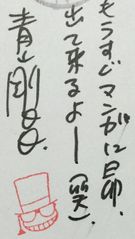 もうすぐマンガに昴、
出て来るよー(笑)
青山剛昌